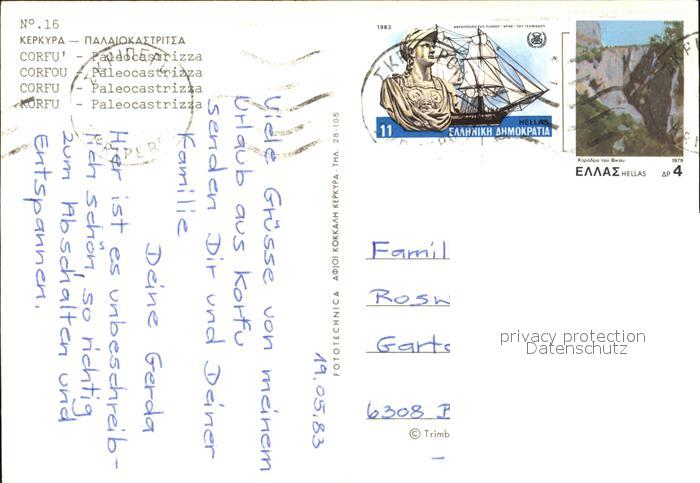 Nº.16
ΚΕΡΚΥΡΑ — ΠΑΛΑΙΟΚΑΣΤΡΙΤΣΑ
CORFU' - Paleocastrizza
CORFOU - Paleocastrizza
CORFU - Paleocastrizza
KORFU - Paleocastrizza
19.05.83
Viele Grüsse von meinem
Urlaub aus Korfu
senden Dir und Deiner
Familie
Deine Gerda
Hier ist es unbeschreib-
lich schön, so richtig
zum Abschalten und
Entspannen.
FOTOTECHNICA ΑΦΙΟΙ ΚΟΚΚΑΛΗ ΚΕΡΚΥΡΑ ΤΗΛ. 28-105
1983
11 HELLAS
ΕΛΛΗΝΙΚΗ ΔΗΜΟΚΡΑΤΙΑ
Χαράδρα του Βίκου 1979
ΕΛΛΑΣ HELLAS ΔΡ 4
Famil
Rosw
Garte
6308 B
privacy protection
Datenschutz
© Trimb